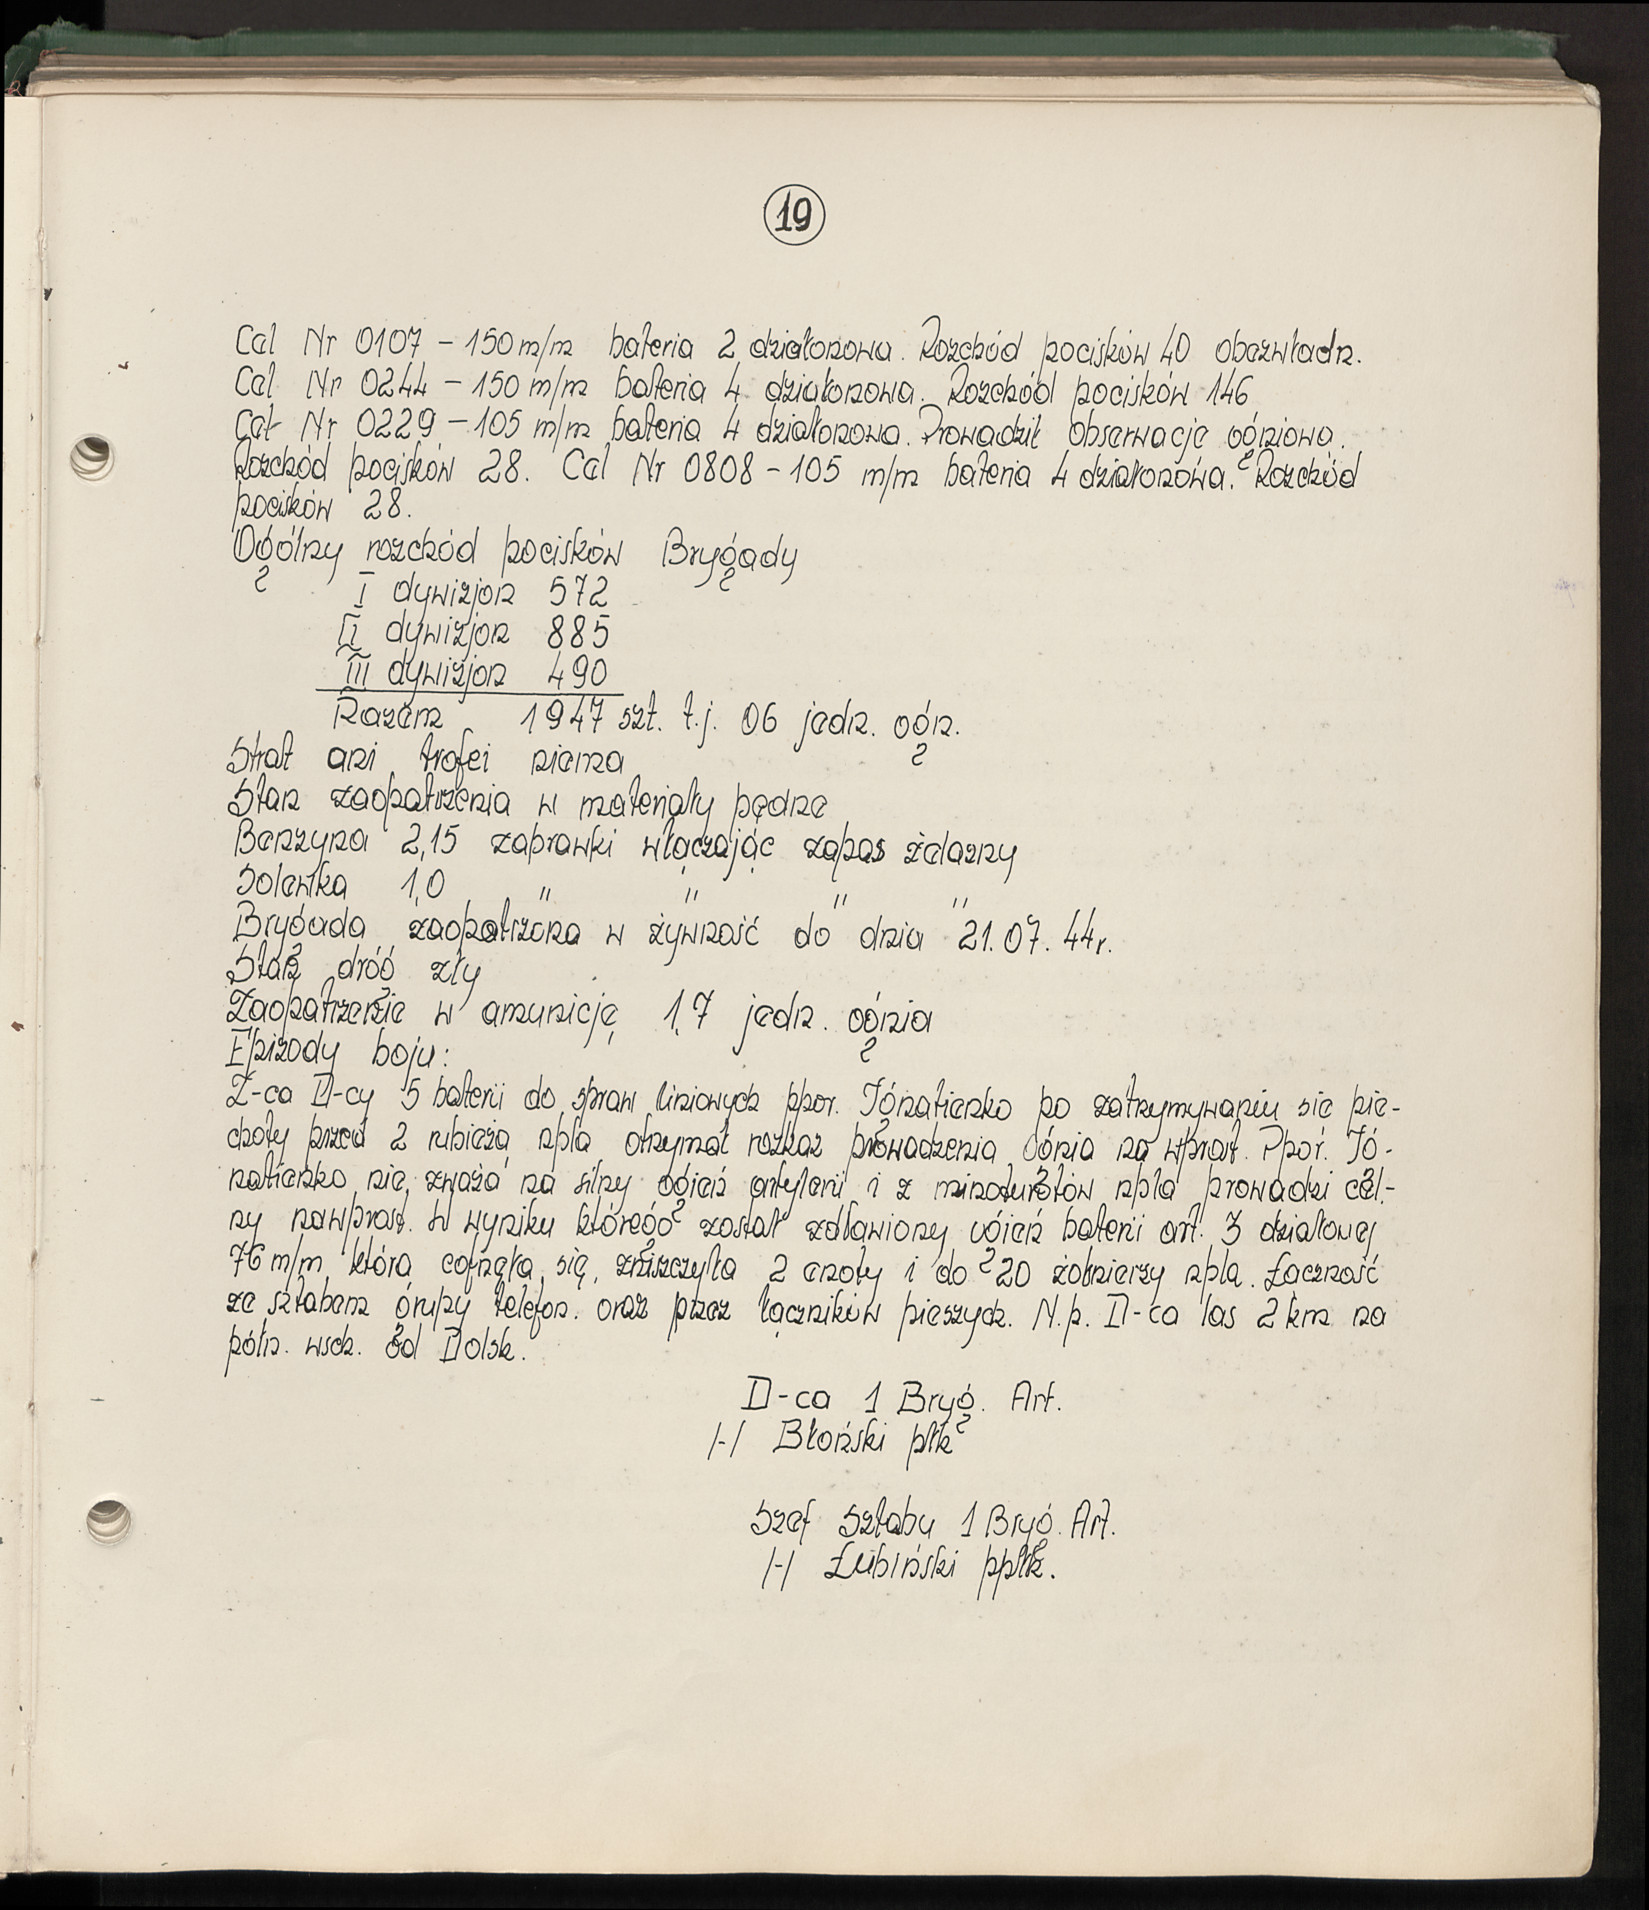 19
Cel Nr 0107 – 150 m/m bateria 2 działonowa. Rozchód pocisków 40 obezwładn.
Cel Nr 0244 – 150 m/m bateria 4 działonowa. Rozchód pocisków 146
Cel Nr 0229 – 105 m/m bateria 4 działonowa. Prowadził obserwację ogniową.
Rozchód pocisków 28. Cel Nr 0808 – 105 m/m bateria 4 działonowa. Rozchód
pocisków 28.
Ogólny rozchód pocisków Brygady
I dywizjon 572
II dywizjon 885
III dywizjon 490
Razem 1947 szt. t.j. 06 jedn. ogn.
Strat ani trofei niema
Stan zaopatrzenia w materiały pędne
Benzyna 2,15 zaprawki włączając zapas żelazny
Solewka 1,0 " " " "
Brygada zaopatrzona w żywność do dnia 21.07.44r.
Stan dróg zły
Zaopatrzenie w amunicję 1,7 jedn. ognia
Epizody boju:
Z-ca D-cy 5 baterii do spraw liniowych ppor. Ignatienko po zatrzymywaniu się pie-
choty przed 2 rubieżą npla otrzymał rozkaz prowadzenia ognia na wprost. Ppor. Ig-
natienko nie zważa na silny ogień artylerii i z minotwrotów npla prowadzi cel-
ny nawprost. W wyniku którego został zdławiony ogień baterii art. 3 działowej
76 m/m która cofnęła się, zniszczyła 2 cnoty i do 20 żołnierzy npla. Łaczność
ze sztabem grupy telefon. oraz przez łączników pieszych. N.p. D-ca las 2 km na
półn. wsch. od Dolsk.
D-ca 1 Bryg. Art.
/-/ Błoński płk
Szef Sztabu 1 Bryg. Art.
/-/ Łubiński ppłk.